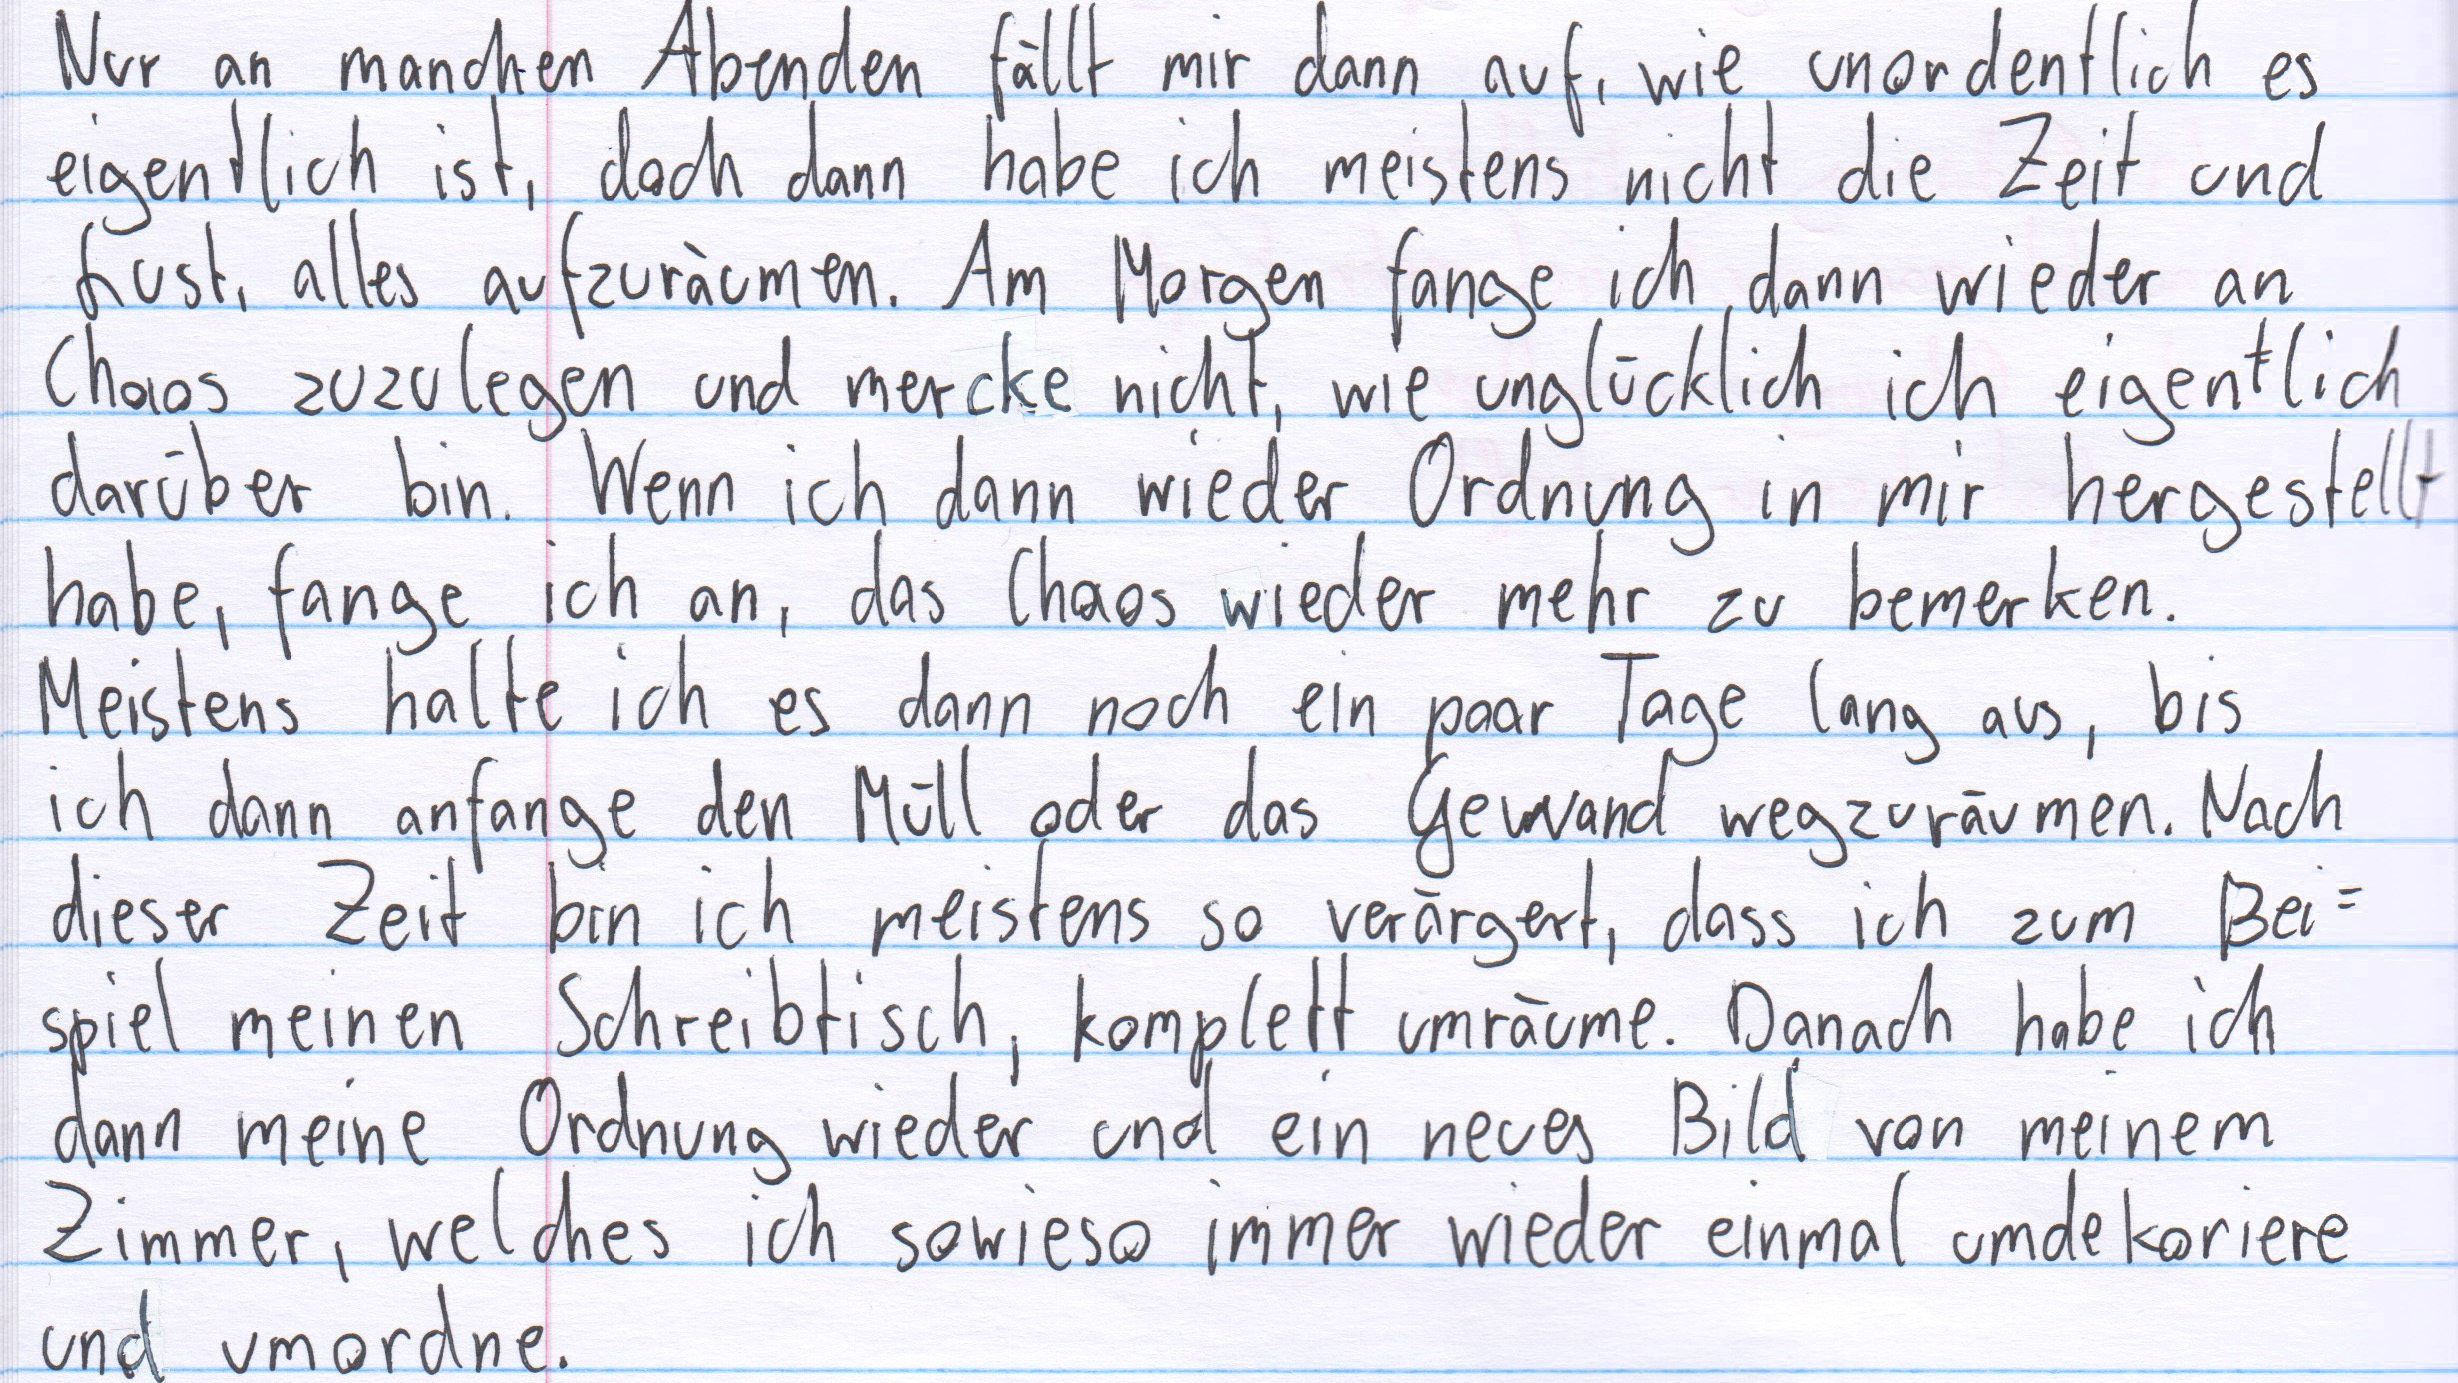 Nur an manchen Abenden fällt mir dann auf, wie unordentlich es
eigentlich ist, doch dann habe ich meistens nicht die Zeit und
Lust, alles aufzuräumen. Am Morgen fange ich dann wieder an
Chaos zuzulegen und mercke nicht, wie unglücklich ich eigentlich
darüber bin. Wenn ich dann wieder Ordnung in mir hergestellt
habe, fange ich an, das Chaos wieder mehr zu bemerken.
Meistens halte ich es dann noch ein paar Tage lang aus, bis
ich dann anfange den Müll oder das Gewand wegzuräumen. Nach
dieser Zeit bin ich meistens so verärgert, dass ich zum Bei=
spiel meinen Schreibtisch, komplett umräume. Danach habe ich
dann meine Ordnung wieder und ein neues Bild von meinem
Zimmer, welches ich sowieso immer wieder einmal umdekoriere
und umordne.